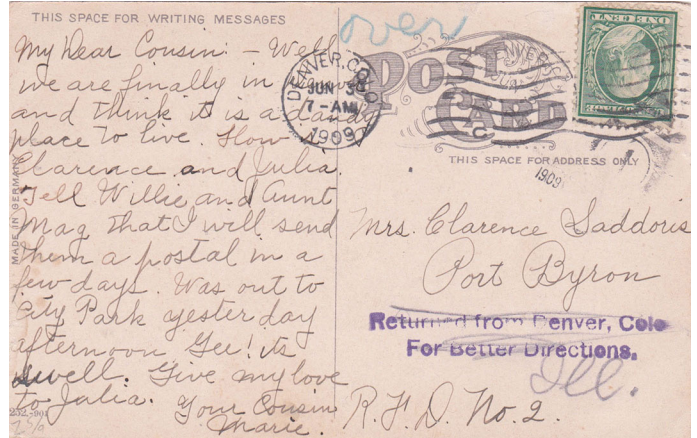 THIS SPACE FOR WRITING MESSAGES
over
My Dear Cousin: - Well
we are finally in
and think it is a dandy
place to live. How
Clarence and Julia.
Tell Willie and Aunt
Mag that I will send
them a postal in a
few days. Was out to
City Park yesterday
afternoon Gee! its
swell. Give my love
to Julia. Your Cousin
Marie.
MADE IN GERMANY
DENVER, COLO.
JUN 3
7-AM
1909
POST
CARD
THIS SPACE FOR ADDRESS ONLY
1909
Mrs. Clarence Saddoris
Port Byron
Returned from Denver, Colo
For Better Directions.
Ill.
R. F. D. No. 2.
ONE CENT